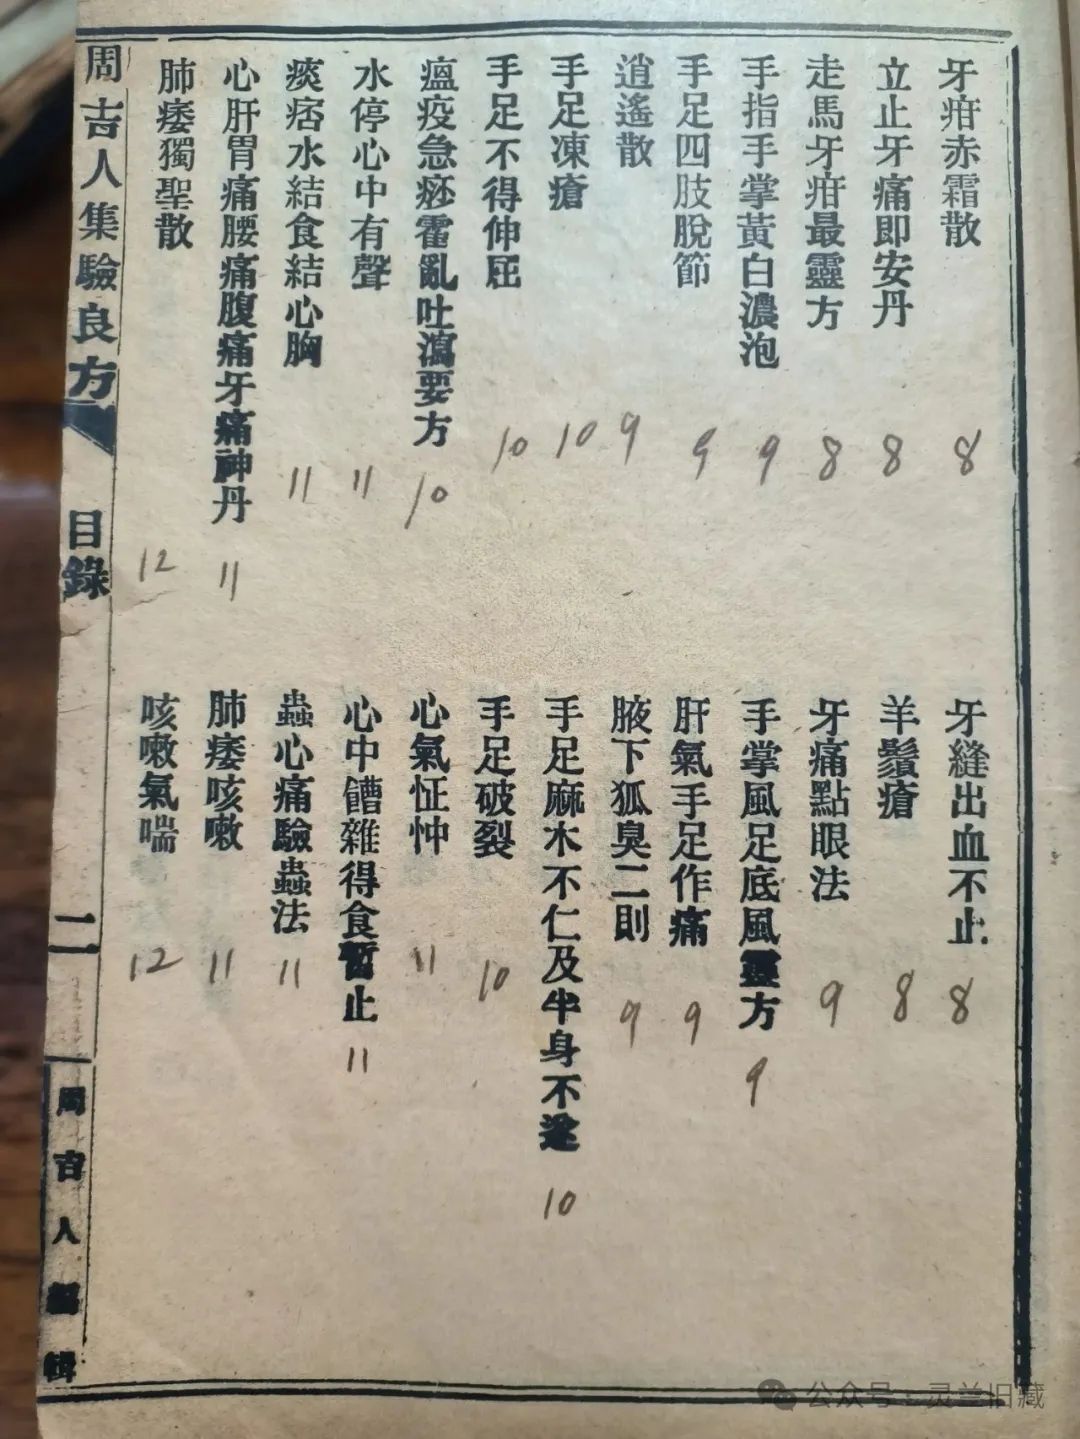 牙疳赤霜散
8
立止牙痛即安丹
8
走馬牙疳最靈方
8
手指手掌黃白濃泡
9
手足四肢脫節
9
逍遙散
9
手足凍瘡
10
手足不得伸屈
10
瘟疫急痧霍亂吐瀉要方
10
水停心中有聲
11
痰痞水結食結心胸
11
心肝胃痛腰痛腹痛牙痛神丹
11
肺痿獨聖散
12
牙縫出血不止
8
羊鬚瘡
8
牙痛點眼法
9
手掌風足底風靈方
9
肝氣手足作痛
9
腋下狐臭二則
9
手足麻木不仁及半身不遂
10
手足破裂
10
心氣怔忡
11
心中饋雜得食暫止
11
蟲心痛驗蟲法
11
肺痿咳嗽
11
咳嗽氣喘
12
周吉人集驗良方
目錄
二
周吉人編輯
公众号·灵兰旧藏